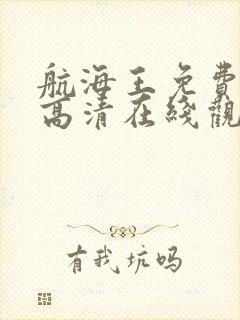 航海王免费
高清在线觀
有我坑吗